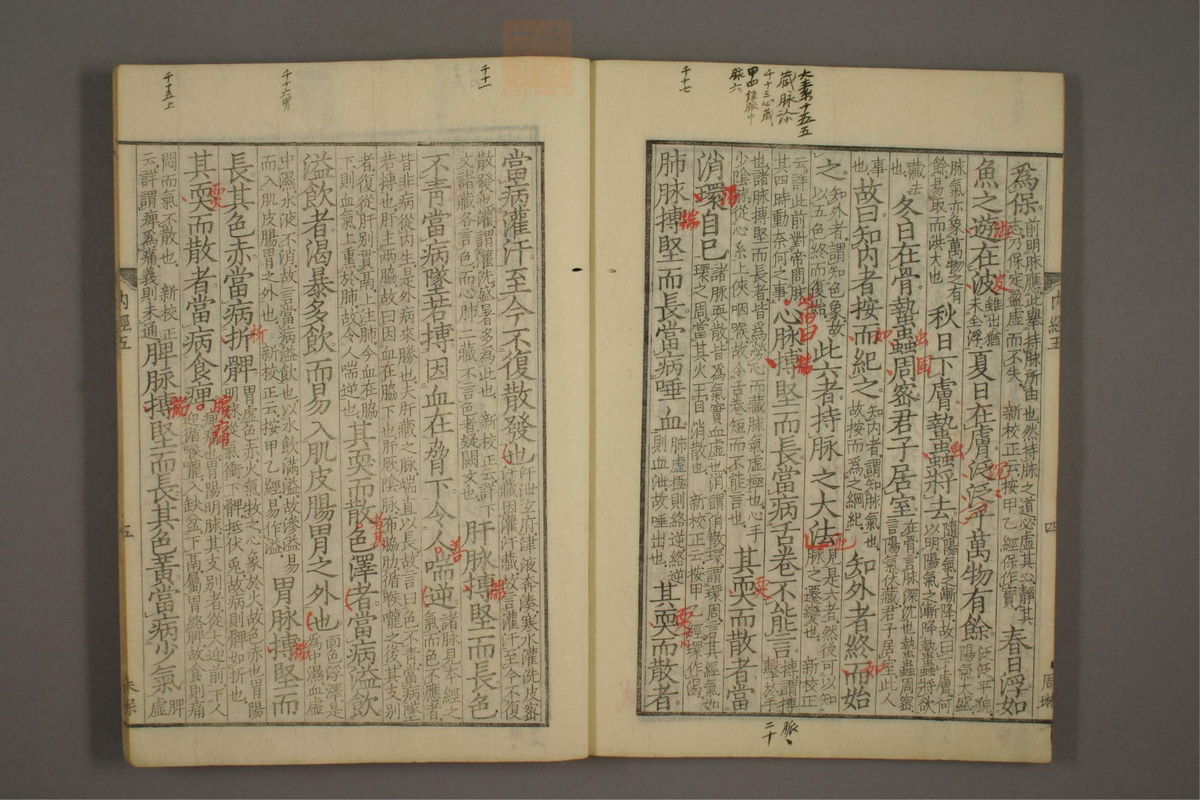 大素第十五五
藏脉診
千十三心藏
甲四経脉中
脉六
千十七
千十一
千十六胃
千十五上
爲保前明脉應此舉持脉所由也然持脉之道必虛其心靜其志乃保定盈虛而不失 新校正云按甲乙經保作寶春日浮如
魚之遊在波雖出猶未全浮夏日在膚泛泛乎萬物有餘泛泛平貌陽氣大盛
脉氣亦象萬物之有餘易取而洪大也秋日下膚蟄蟲將去隨陽氣之漸降故曰下膚何以明陽氣之漸降蟄蟲將欲
藏去也冬日在骨蟄蟲周密君子居室在骨言脉深沈也蟄蟲周密言陽氣伏藏君子居室此人
事也故曰知內者按而紀之知內者謂知脉氣也故按而爲之綱紀知外者終而始
之知外者謂知色象故以五色終而復始此六者持脉之大法見是六者然後可以知脉之遷變也 新校正
云詳此前對帝問脉其四時動奈何之事心脉搏堅而長當病舌卷不能言搏謂搏擊於手
也諸脉搏堅而長者皆爲勞心而藏脉氣虛極也心手少陰脉從心系上俠咽喉故令舌卷短而不能言也其耎而散者當
消環自已諸脉耎散皆爲氣實血虛也消謂消散環謂環周言其經氣如環之周當其火王自消散也 新校正云按甲乙經環作渴
肺脉搏堅而長當病唾血肺虛極則絡逆絡逆則血泄故唾出也其耎而散者
內經五
四
脉
二十
當病灌汗至令不復散發也汗泄玄府津液奔湊寒水灌洗皮密汗藏因灌汗藏故言灌汗至令不復
散發也灌謂灌洗盛暑多爲此也 新校正云詳下文諸藏各言色而心肺二藏不言色者疑闕文也肝脉搏堅而長色
不青當病墜若搏因血在脅下令人喘逆諸脉見本經之氣而色不應者
皆非病從內生是外病來勝也夫肝藏之脉端直以長故言曰色不青當病墜若搏也肝主兩脅故曰因血在脅下也肝厥陰脉布脅肋循喉嚨之後其支別
者復從肝別貫鬲上注肺今血在脅下則血氣上熏於肺故令人喘逆也其耎而散色澤者當病溢飲
溢飲者渴暴多飲而易入肌皮腸胃之外也面色浮澤是爲中濕血虛
中濕水液不消故言當病溢飲也以水飲滿溢故滲溢易而入肌皮腸胃之外也 新校正云按甲乙經易作溢胃脉搏堅而
長其色赤當病折髀胃虛色赤火氣牧之心象於火故色赤也胃陽明脉從氣衝下髀抵伏兔故病則髀如折也
其耎而散者當病食痹痹痛也胃陽明脉其支別者從大迎前下人迎循喉嚨入缺盆下鬲屬胃絡脾故食則痛
悶而氣不散也 新校正云詳謂痹爲痛義則未通脾脉搏堅而長其色黃當病少氣脾虛
內經五
五